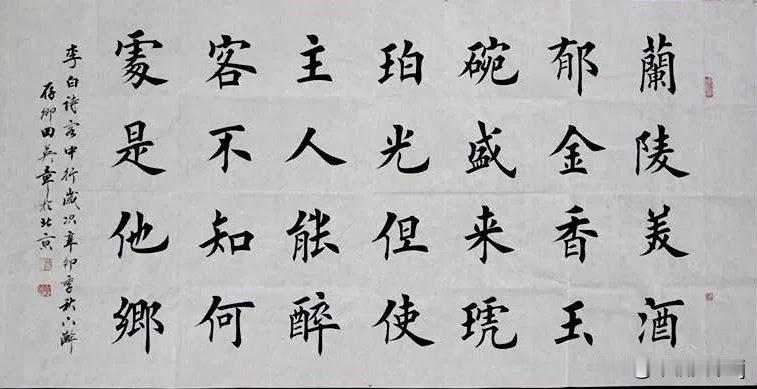 蘭陵美酒
郁金香玉
碗盛来琥
珀光但使
主人能醉
客不知何
處是他鄉
李白诗客中行岁次辛卯季秋
存卿田英章於北京